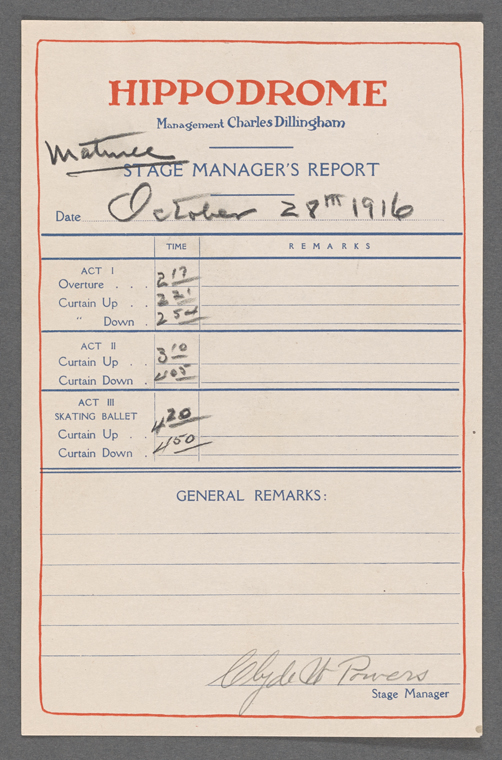 HIPPODROME
Management Charles Dillingham
Matinee
STAGE MANAGER'S REPORT
Date October 28TH 1916
TIME REMARKS
ACT I
Overture . . . 2 17
Curtain Up . . 2 21
" Down . 2 54
ACT II
Curtain Up . . 3 10
Curtain Down . 4 05
ACT III
SKATING BALLET
Curtain Up . . 4 20
Curtain Down . 4 50
GENERAL REMARKS:
Clyde W Powers
Stage Manager